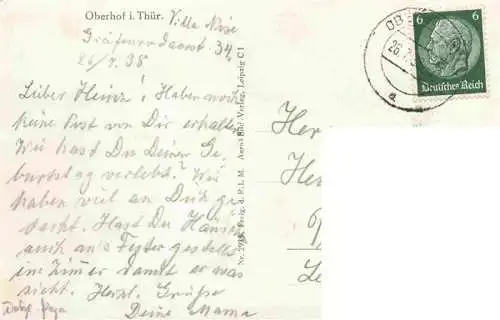 Oberhof i. Thür. Villa
Gräfenrodaerstr. 34.
26/7. 38
Lieber Heinz! Haben noch
keine Post von Dir erhalten
Wie hast Du Deinen Ge-
burtstag verlebt? Wir
haben viel an Dich ge-
dacht. Hast Du Hansi
auch an's Fester gestellt
im Zimmer damit er was
sieht. Herzl. Grüße
Deine Mama
Leipzig C1
Nr.
6 6
Deutsches Reich
a